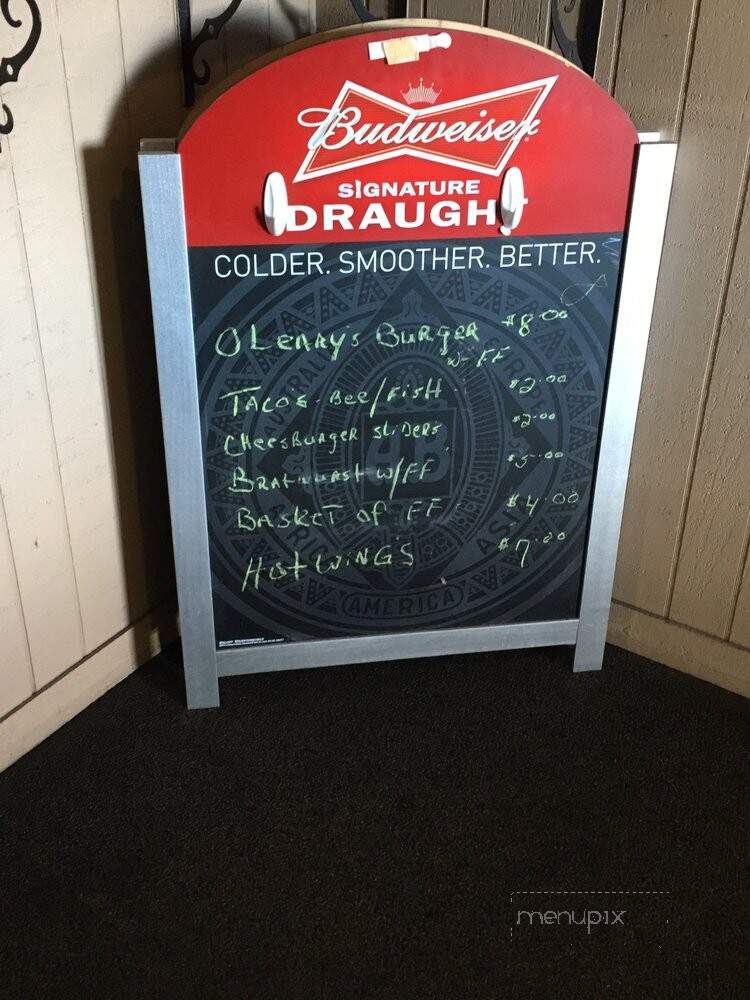 Budweiser
SIGNATURE
DRAUGHT
COLDER. SMOOTHER. BETTER.
O LEARY'S BURGER $8.00
W- FF
TACOS- BEE/FISH $2.00
CHEESBURGER SLIDERS $2.00
BRATWURST W/FF $5.00
BASKET OF FF $4.00
HOT WINGS $7.00
AMERICA
menupix